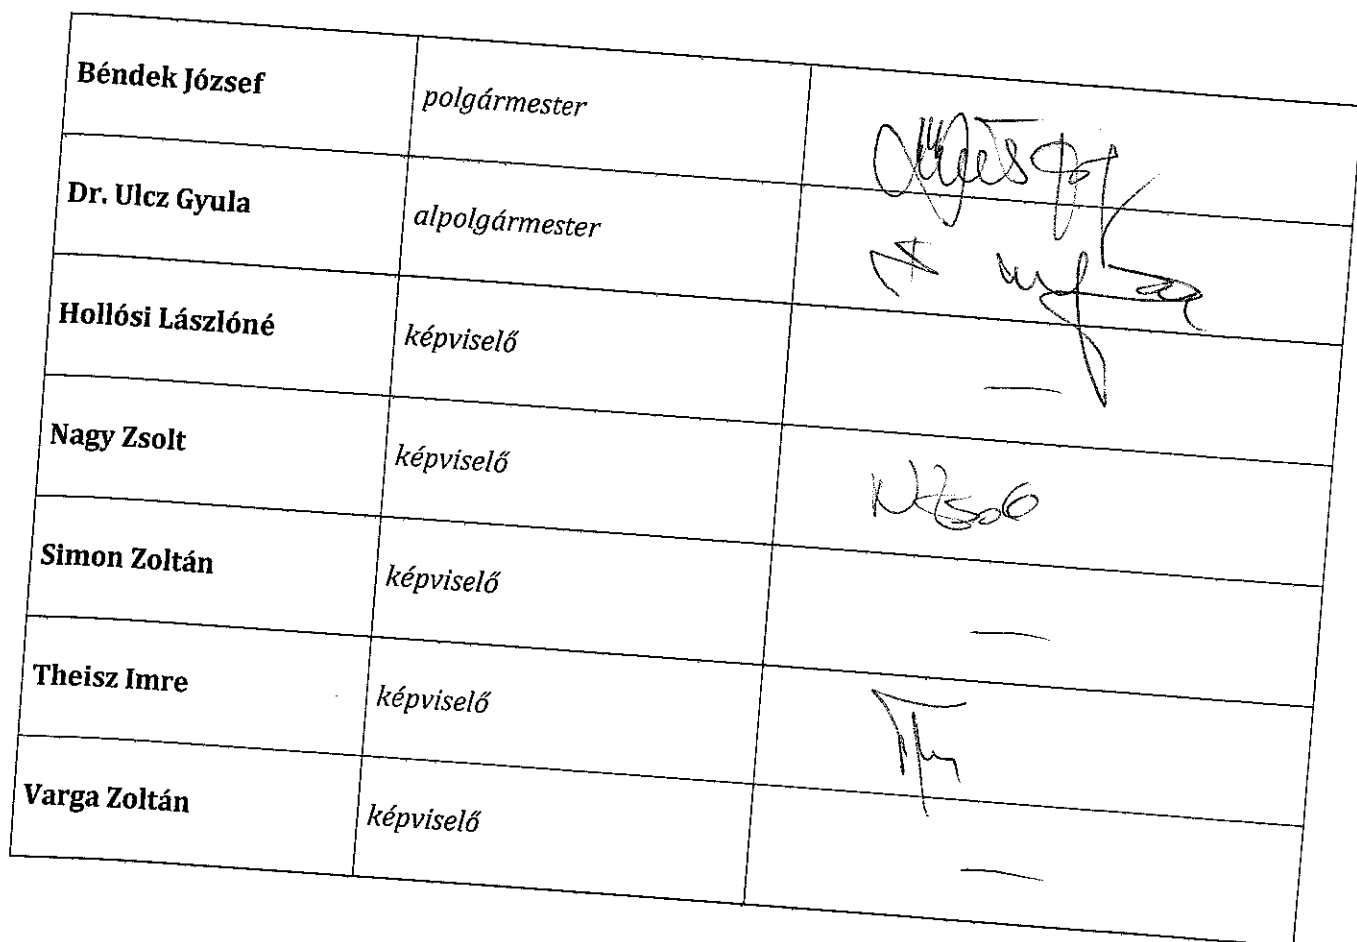 Béndek József polgármester
Dr. Ulcz Gyula alpolgármester
Hollósi Lászlóné képviselő —
Nagy Zsolt képviselő
Simon Zoltán képviselő —
Theisz Imre képviselő
Varga Zoltán képviselő —